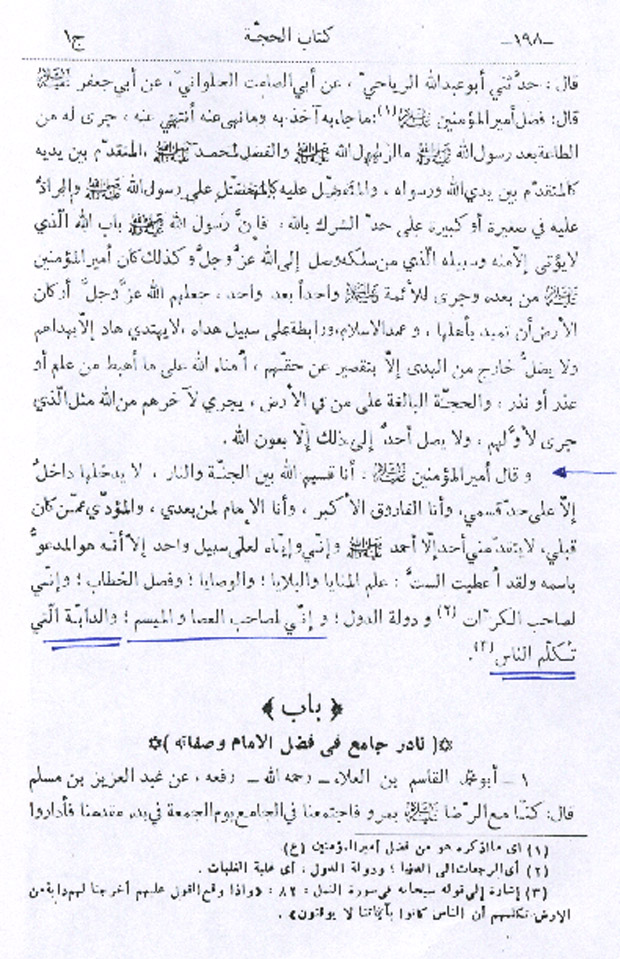 -١٩٨- كتاب الحجّة ج١
قال : حدّثني أبو عبدالله الرياحيّ ، عن أبي الصامت الحلوانيّ ، عن أبي جعفر عليه السلام
قال : فضل أمير المؤمنين عليه السلام (١) : ما جاء به آخذ به وما نهى عنه أنتهي عنه ، جرى له من
الطاعة بعد رسول الله صلى الله عليه وآله ما لرسول الله صلى الله عليه وآله والفضل لمحمد صلى الله عليه وآله ، المتقدّم بين يديه
كالمتقدّم بين يدي الله ورسوله ، والمتفضّل عليه كالمتفضّل على رسول الله صلى الله عليه وآله والرادّ
عليه في صغيرة أو كبيرة على حدّ الشرك بالله ، فإنّ رسول الله صلى الله عليه وآله باب الله الّذي
لا يؤتى إلّا منه وسبيله الّذي من سلكه وصل إلى الله عزّ وجلّ وكذلك كان أمير المؤمنين
عليه السلام من بعده وجرى للأئمة عليهم السلام واحداً بعد واحد ، جعلهم الله عزّ وجلّ أركان
الأرض أن تميد بأهلها ، وعمد الاسلام ، ورابطة على سبيل هداه ، لا يهتدي هاد إلّا بهداهم
ولا يضلّ خارج من الهدى إلّا بتقصير عن حقّهم ، اُمناء الله على ما أهبط من علم أو
عذر أو نذر ، والحجّة البالغة على من في الأرض ، يجري لآخرهم من الله مثل الّذي
جرى لأوّلهم ، ولا يصل أحدٌ إلى ذلك إلّا بعون الله .
و قال أمير المؤمنين عليه السلام : أنا قسيم الله بين الجنّة والنار ، لا يدخلها داخلٌ
إلّا على حدّ قسمي ، وأنا الفاروق الأكبر ، وأنا الإمام لمن بعدي ، والمؤدّي عمّن كان
قبلي ، لا يتقدّمني أحد إلّا أحمد صلى الله عليه وآله وإنّي وإيّاه لعلى سبيل واحد إلّا أنّه هو المدعوّ
باسمه ولقد اُعطيت الستّ : علم المنايا والبلايا ؛ والوصايا ؛ وفصل الخطاب ؛ وإنّي
لصاحب الكرّات (٢) و دولة الدول ؛ و إنّي لصاحب العصا و الميسم ؛ والدابّة الّتي
تكلّم الناس (٣) .
﴿ باب ﴾
✡( نادر جامع فى فضل الامام وصفاته )✡
١ - أبو محمّد القاسم بن العلاء - رحمه الله - رفعه ، عن عبد العزيز بن مسلم
قال : كنّا مع الرّضا عليه السلام بمرو فاجتمعنا في الجامع يوم الجمعة في بدء مقدمنا فأداروا
(١) اى ما اذكره هو من فضل أمير المؤمنين (ع)
(٢) أى الرجعات الى الدنيا ؛ ودولة الدول : أى غلبة الغلبات .
(٣) إشارة إلى قوله سبحانه فى سورة النمل : ٨٢ : «واذا وقع القول عليهم أخرجنا لهم دابة من
الارض تكلمهم أن الناس كانوا بآياتنا لا يوقنون» .